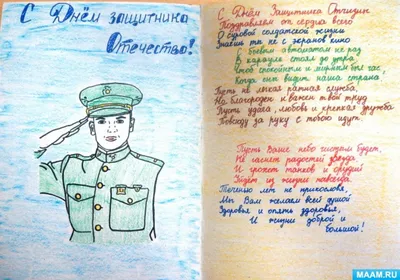 С Днём защитника
Отечества!
С Днем Защитника Отчизны
Поздравляем от сердца всего
О суровой солдатской жизни
Знаешь ты не с экранов кино
С боевым автоматом не раз
В карауле стоял до утра,
Чтоб спокойным и мирным был час,
Когда сны видит наша страна,
Пусть не легка ратная служба,
Но благороден и важен твой труд
Пусть удача, любовь и крепкая дружба
Повсюду за руку с тобою идут.
Пусть Ваше небо чистым будет,
Не гаснет радостей звезда,
И грохот танков и орудий
Уйдет из жизни навсегда.
лет не
Мы Вам желаем всей душой
Здоровья и опять здоровья,
И жизни доброй и
большой!
MAAM.RU